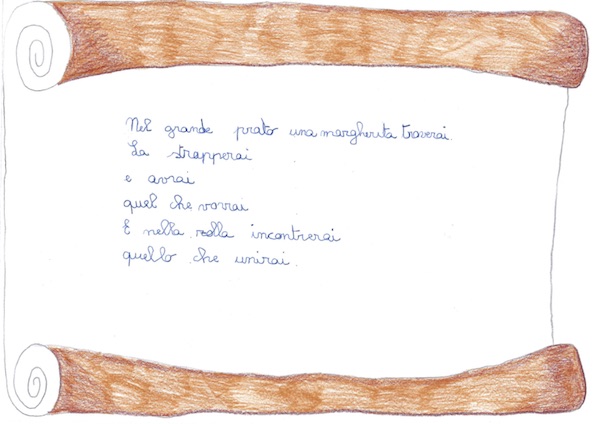 Nel grande prato una margherita troverai.
La strapperai
e avrai
quel che vorrai
E nella colla incontrerai
quello che unirai.